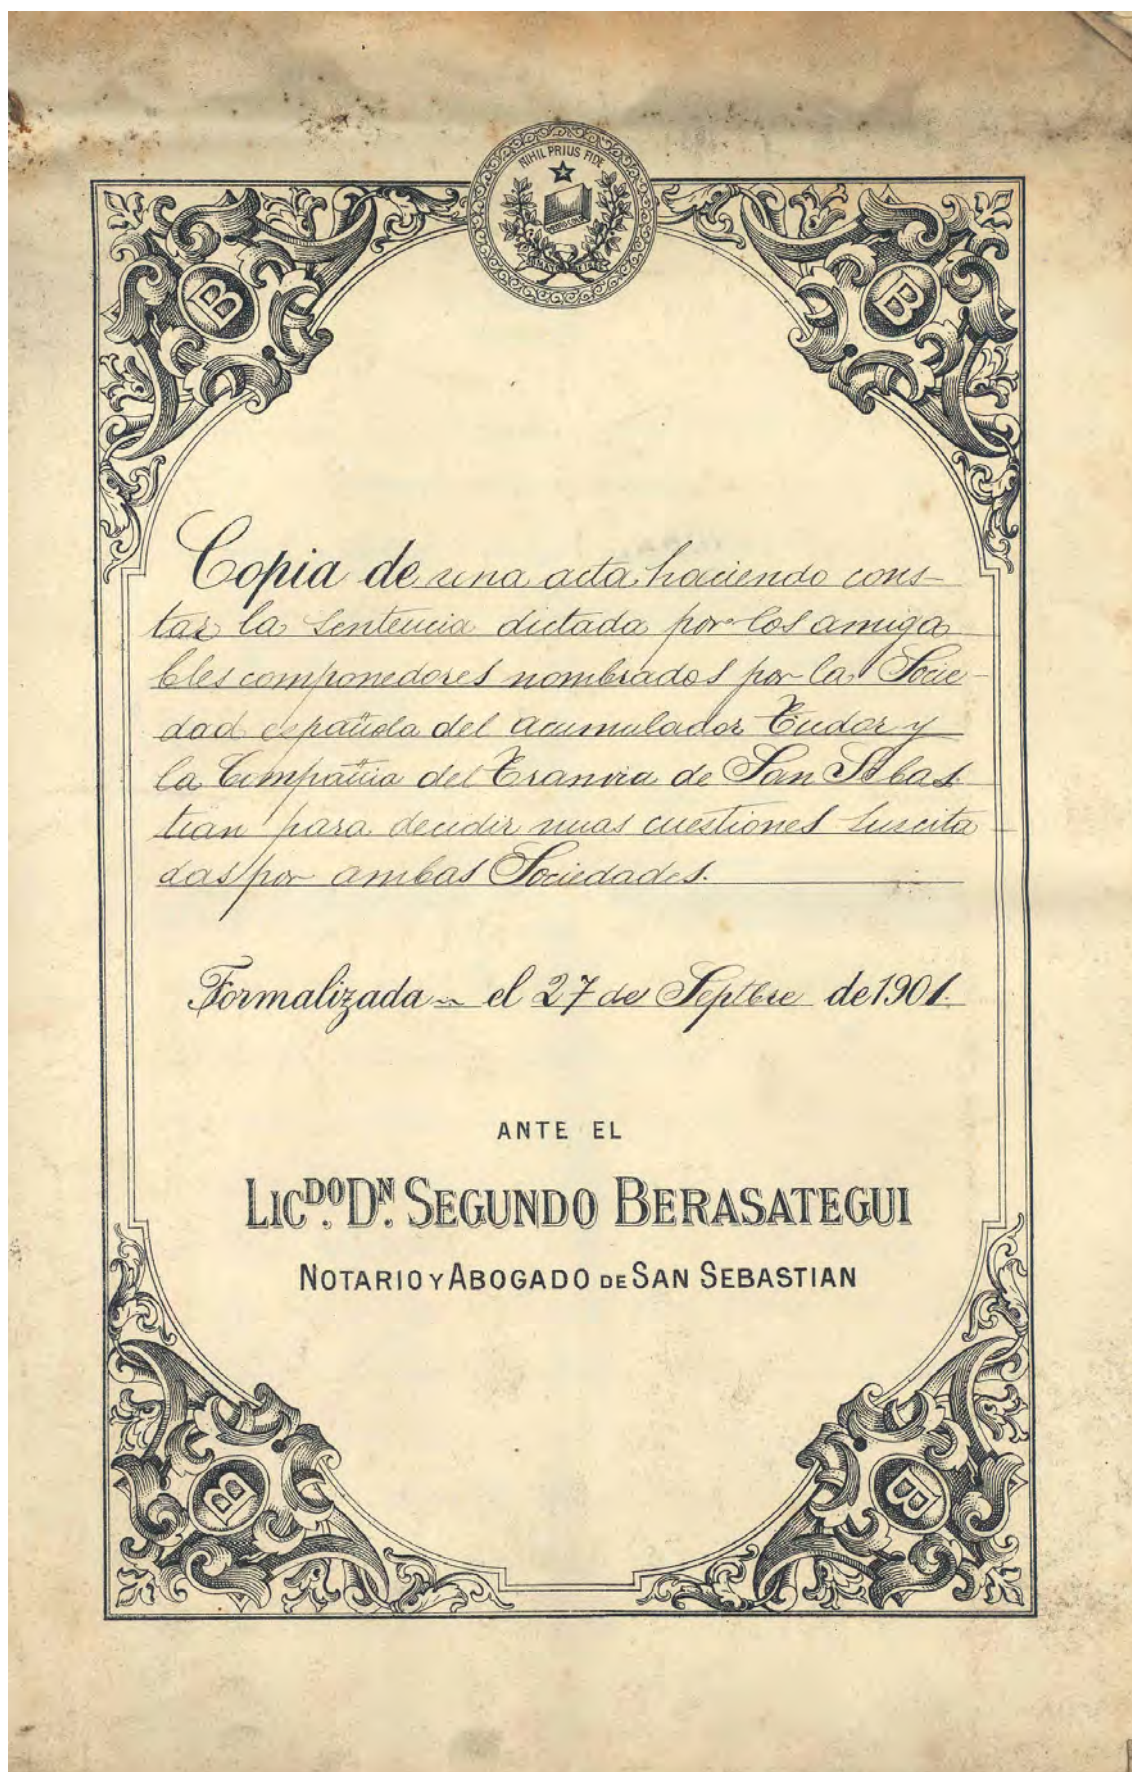 NIHIL PRIUS FIDE
B
B
Copia de una acta haciendo cons-
tar la sentencia dictada por los amiga
bles componedores nombrados por la Socie-
dad española del acumulador Tudor y
la Compañia del Tranvia de San Sebas-
tian para decidir unas cuestiones suscita
das por ambas Sociedades.
Formalizada el 27 de Septbre de 1901.
ANTE EL
LICDO. DN. SEGUNDO BERASATEGUI
NOTARIO Y ABOGADO DE SAN SEBASTIAN
B
B